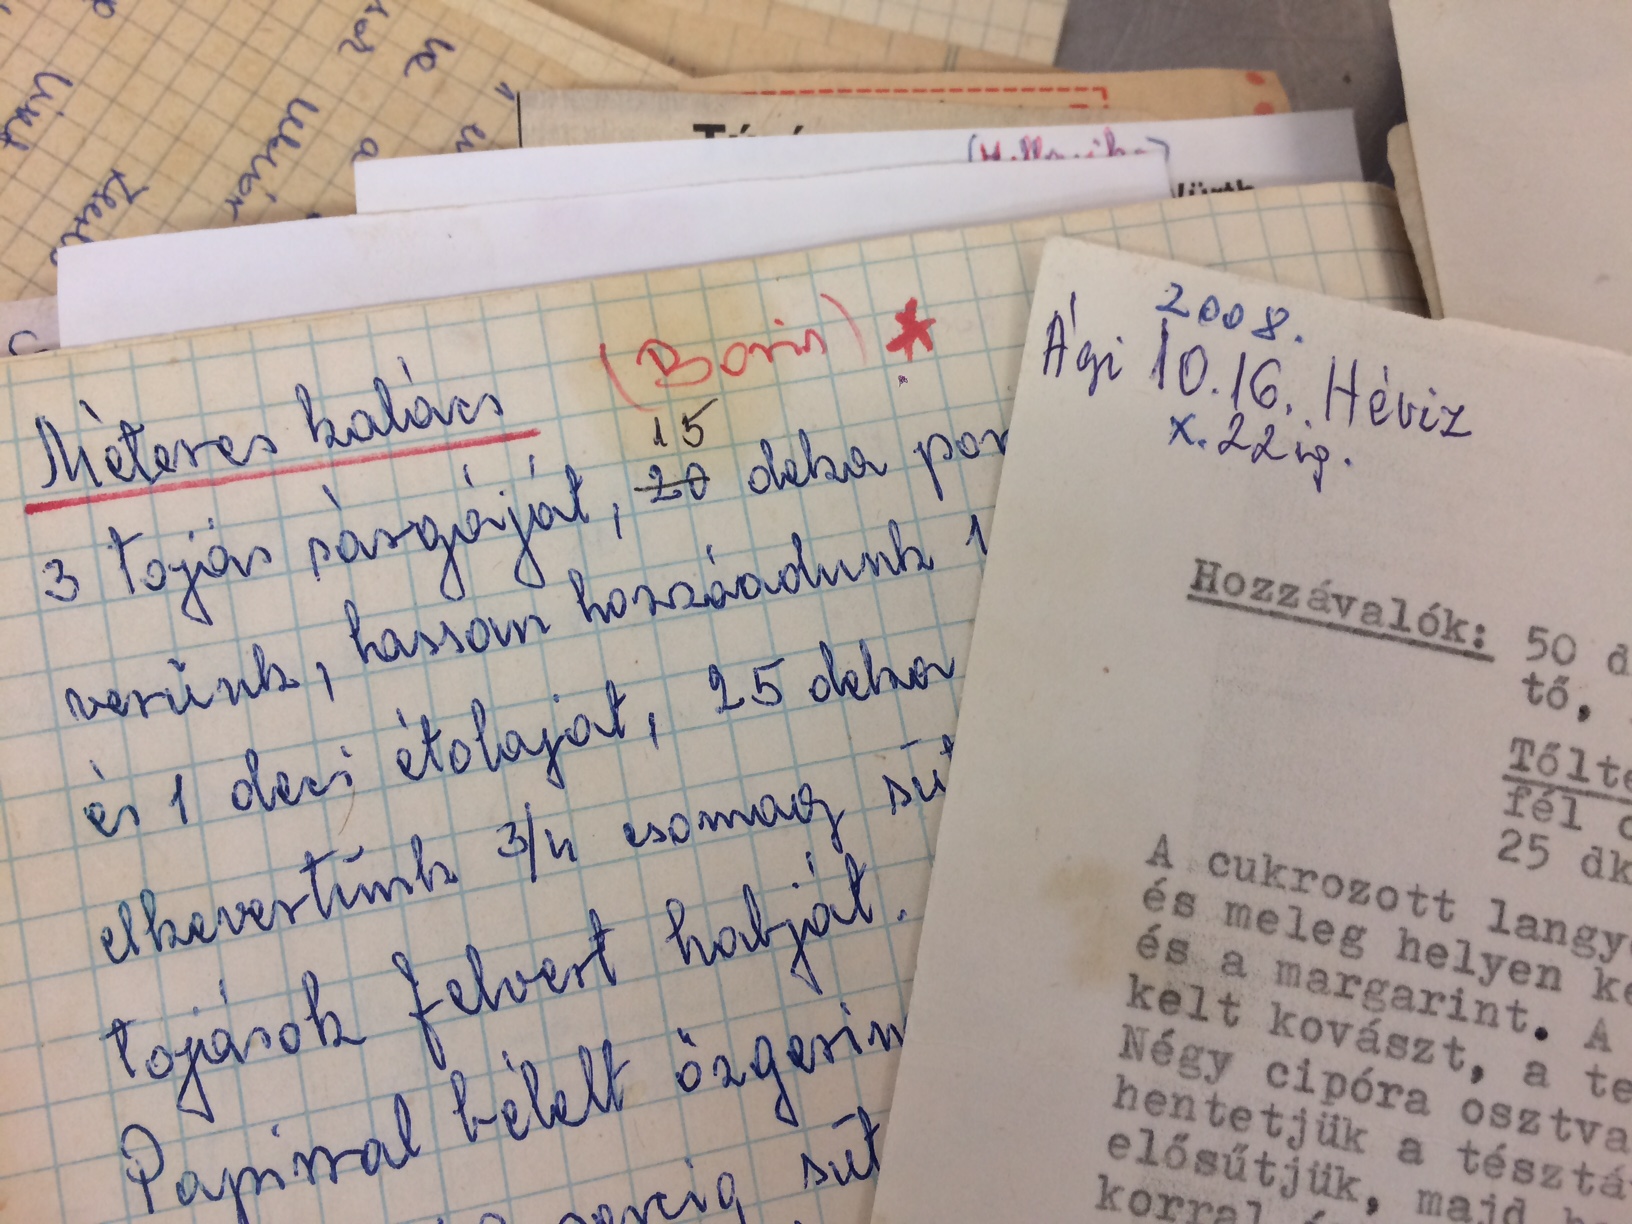 Méteres kalács
(Boris) *
15
3 tojás sárgáját, 20 deka por
verünk, lassan hozzáadunk 1
és 1 deci étolajat, 25 deka
elkevertünk 3/4 csomag süt
tojások felvert habját.
Papirral bélelt őzgerin
percig süt
2008.
Ági 10.16. Héviz
X. 22ig.
Hozzávalók: 50 d
tő,
Tőlte
fél
25 dk
A cukrozott langy
és meleg helyen ke
és a margarint. A
kelt kovászt, a te
Négy cipóra osztva
hentetjük a tésztá
elősűtjük, majd
korral